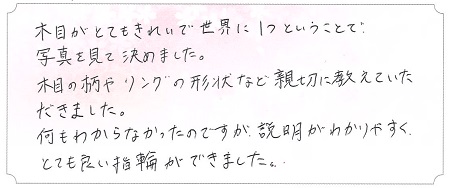 木目がとてもきれいで世界に1つということで
写真を見て決めました。
木目の柄やリングの形状など親切に教えていた
だきました。
何もわからなかったのですが、説明がわかりやすく、
とても良い指輪ができました。